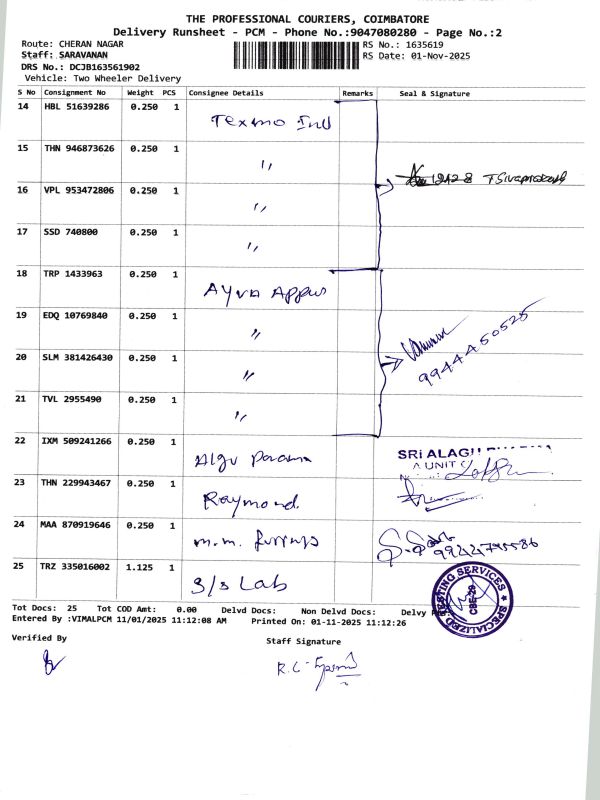 THE PROFESSIONAL COURIERS, COIMBATORE
Delivery Runsheet - PCM - Phone No.:9047080280 - Page No.:2
Route: CHERAN NAGAR
RS No.: 1635619
Staff: SARAVANAN
RS Date: 01-Nov-2025
DRS No.: DCJB163561902
Vehicle: Two Wheeler Delivery
S No Consignment No Weight PCS Consignee Details Remarks Seal & Signature
14 HBL 51639286 0.250 1 Texmo Ind
15 THN 946873626 0.250 1 〃
16 VPL 953472806 0.250 1 〃
17 SSD 740800 0.250 1 〃
18 TRP 1433963 0.250 1
19 EDQ 10769840 0.250 1 〃
9944450525
20 SLM 381426430 0.250 1 〃
21 TVL 2955490 0.250 1 〃
22 IXM 509241266 0.250 1
SRI ALAGU
A UNIT
23 THN 229943467 0.250 1 Raymond
24 MAA 870919646 0.250 1 m.m.
25 TRZ 335016002 1.125 1 S/s Lab
TESTING SERVICES
CBE-29
SPECIALIZED
Tot Docs: 25 Tot COD Amt: 0.00 Delvd Docs: Non Delvd Docs: Delvy
Entered By :VIMALPCM 11/01/2025 11:12:08 AM Printed On: 01-11-2025 11:12:26
Verified By
Staff Signature